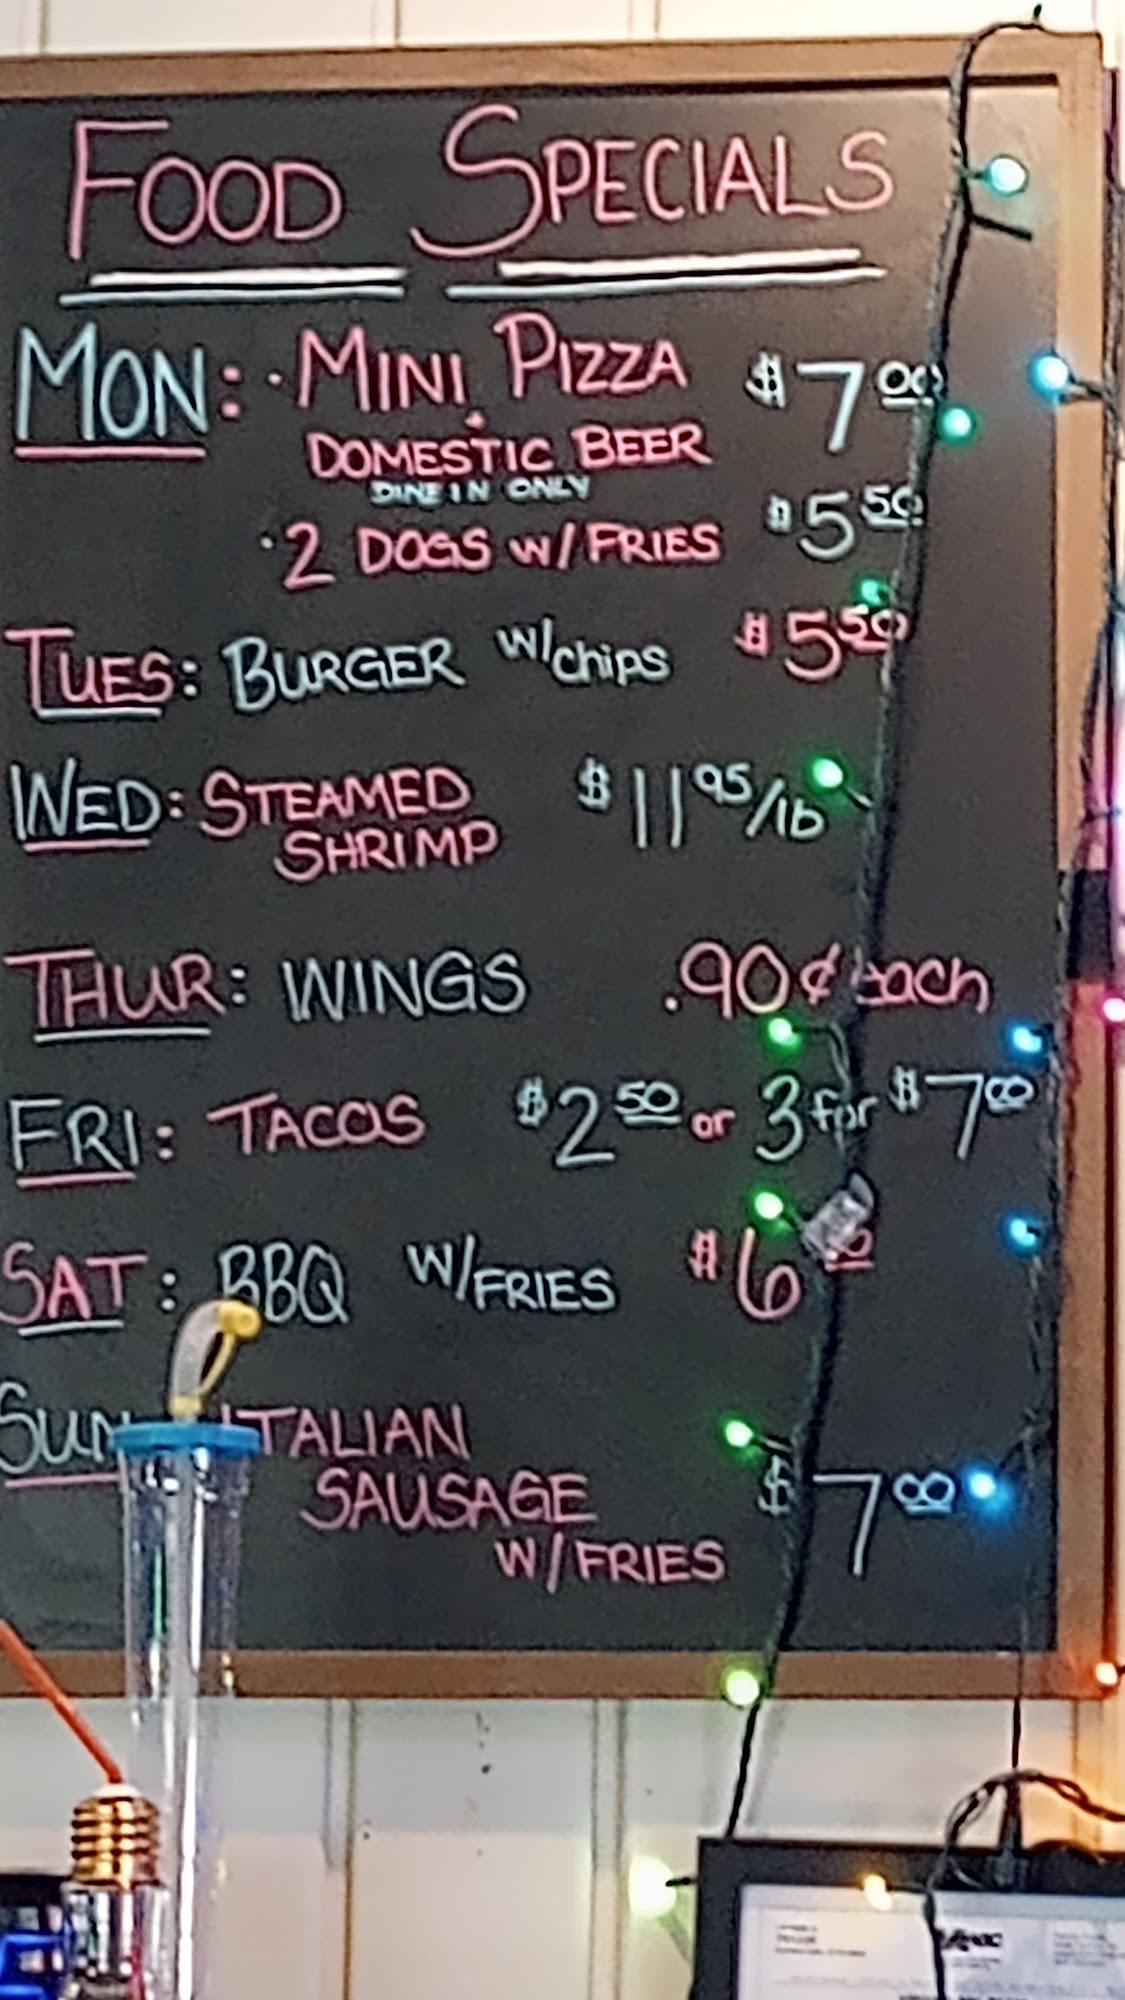 FOOD SPECIALS
MON: · MINI PIZZA $7 00
+
DOMESTIC BEER
DINE IN ONLY
· 2 DOGS W/ FRIES $5 50
TUES: BURGER W/ chips $5 50
WED: STEAMED SHRIMP $11 95/lb
THUR: WINGS .90¢ each
FRI: TACOS $2 50 or 3 for $7 00
SAT: BBQ W/FRIES $6
SUN ITALIAN
SAUSAGE $7 00
W/FRIES